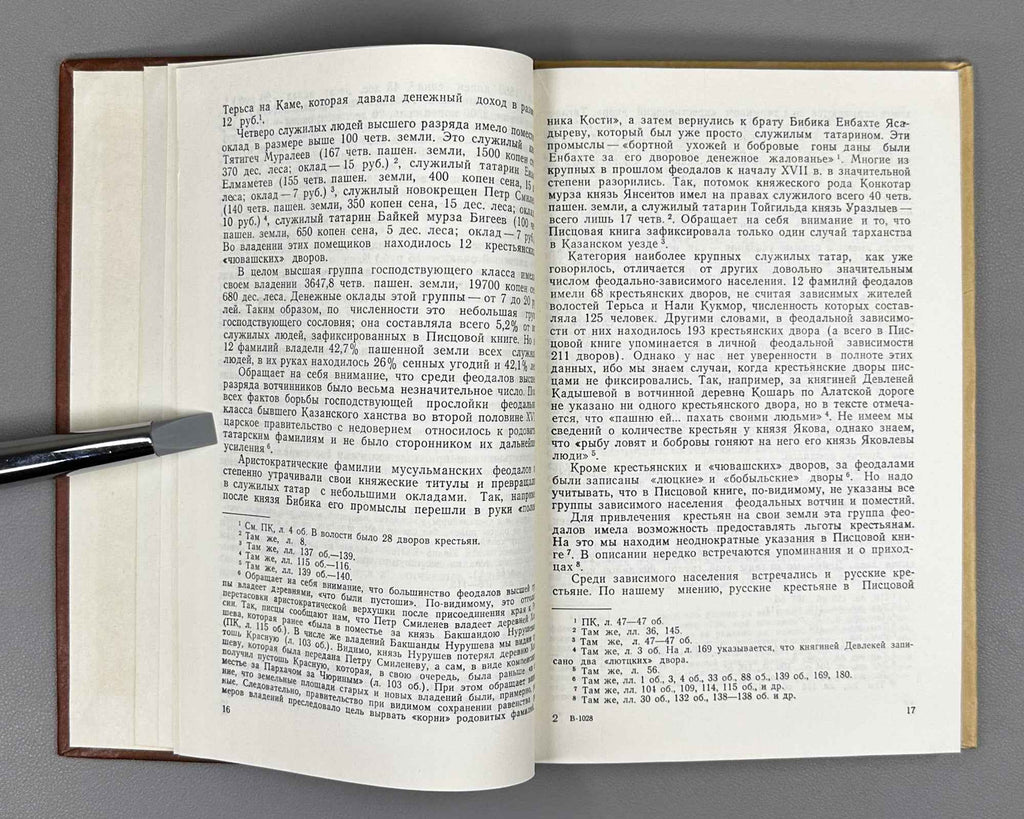 Терьса на Каме, которая давала денежный доход в
12 руб.¹.
Четверо служилых людей высшего разряда имело
оклад в размере выше 100 четв. земли. Это служилый
Тятигеч Муралеев (167 четв. пашен. земли, 1500 копен
370 дес. леса; оклад — 15 руб.) ², служилый татарин
Елмаметев (155 четв. пашен. земли, 400 копен сена, 15
леса; оклад — 7 руб.) ³, служилый новокрещен Петр
(140 четв. пашен. земли, 350 копен сена, 15 дес. леса;
10 руб.) ⁴, служилый татарин Байкей мурза Бигеев (100
пашен. земли, 650 копен сена, 5 дес. леса; оклад — 7
Во владении этих помещиков находилось 12
«чувашских» дворов.
В целом высшая группа господствующего класса
своем владении 3647,8 четв. пашен. земли, 19700 копен
680 дес. леса. Денежные оклады этой группы — от 7 до 20
лей. Таким образом, по численности это небольшая
господствующего сословия; она составляла всего 5,2%
служилых людей, зафиксированных в Писцовой книге. Но
12 фамилий владели 42,7% пашенной земли всех
людей, в их руках находилось 26% сенных угодий и 42,1%
Обращает на себя внимание, что среди феодалов
разряда вотчинников было весьма незначительное число.
всех фактов борьбы господствующей прослойки
класса бывшего Казанского ханства во второй половине
царское правительство с недоверием относилось к
татарским фамилиям и не было сторонником их
усиления ⁶.
Аристократические фамилии мусульманских феодалов
степенно утрачивали свои княжеские титулы и
в служилых татар с небольшими окладами. Так,
после князя Бибика его промыслы перешли в руки
¹ См. ПК, л. 4 об. В волости было 28 дворов крестьян.
² Там же, л. 8.
³ Там же, лл. 137 об.—139.
⁴ Там же, лл. 115 об.—116.
⁵ Там же, лл. 139 об.—140.
⁶ Обращает на себя внимание, что большинство феодалов высшей
пы владеет деревнями, «что были пустоши». По-видимому, это
перестановки аристократической верхушки после присоединения края к
сии. Так, писцы сообщают нам, что Петр Смиленев владеет деревней
шева, которая ранее «была в поместье за князь Бакшандою
(ПК, л. 115 об.). В числе же владений Бакшанды Нурушева мы видим
тошь Красную (л. 103 об.). Видимо, князь Нурушев потерял деревню
шеву, которая была передана Петру Смиленеву, а сам, в виде
получил пустошь Красную, которая, в свою очередь, была раньше
местье за Пархачом за Чюриным» (л. 103 об.). При этом обращает
ние, что земельные площади старых и новых владений были, примерно,
ные. Следовательно, правительство при видимом сохранении равенства
меров владений преследовало цель вырвать «корни» родовитых
16
ника Кости», а затем вернулись к брату Бибика Енбахте Яса-
дыреву, который был уже просто служилым татарином. Эти
промыслы — «бортной ухожей и бобровые гоны даны были
Енбахте за его дворовое денежное жалованье» ¹. Многие из
крупных в прошлом феодалов к началу XVII в. в значительной
степени разорились. Так, потомок княжеского рода Конкотар
мурза князь Янсеитов имел на правах служилого всего 40 четв.
пашен. земли, а служилый татарин Тойгильда князь Уразлыев —
всего лишь 17 четв. ². Обращает на себя внимание и то, что
Писцовая книга зафиксировала только один случай тарханства
в Казанском уезде ³.
Категория наиболее крупных служилых татар, как уже
говорилось, отличается от других довольно значительным
числом феодально-зависимого населения. 12 фамилий феодалов
имели 68 крестьянских дворов, не считая зависимых жителей
волостей Терьса и Нали Кукмор, численность которых состав-
ляла 125 человек. Другими словами, в феодальной зависимо-
сти от них находилось 193 крестьянских двора (а всего в Пис-
цовой книге упоминается в личной феодальной зависимости
211 дворов). Однако у нас нет уверенности в полноте этих
данных, ибо мы знаем случаи, когда крестьянские дворы пис-
цами не фиксировались. Так, например, за княгиней Девленей
Кадышевой в вотчинной деревне Кошарь по Алатской дороге
не указано ни одного крестьянского двора, но в тексте отмеча-
ется, что «пашню ей... пахать своими людьми» ⁴. Не имеем мы
сведений о количестве крестьян у князя Якова, однако знаем,
что «рыбу ловят и бобровы гоняют на него его князь Яковлевы
люди» ⁵.
Кроме крестьянских и «чювашских» дворов, за феодалами
были записаны «люцкие» и «бобыльские» дворы ⁶. Но надо
учитывать, что в Писцовой книге, по-видимому, не указаны все
группы зависимого населения феодальных вотчин и поместий.
Для привлечения крестьян на свои земли эта группа фео-
далов имела возможность предоставлять льготы крестьянам.
На это мы находим неоднократные указания в Писцовой кни-
ге ⁷. В описании нередко встречаются упоминания и о приход-
цах ⁸.
Среди зависимого населения встречались и русские кре-
стьяне. По нашему мнению, русские крестьяне в Писцовой
¹ ПК, л. 47—47 об.
² Там же, лл. 36, 145.
³ Там же, л. 47—47 об.
⁴ Там же, л. 3 об. На л. 169 указывается, что княгиней Девлекей запи-
сано два «лютцких» двора.
⁵ Там же, л. 56.
⁶ Там же, лл. 1 об., 3, 4 об., 33 об., 88 об., 139 об., 169, 180.
⁷ Там же, лл. 104 об., 109, 114, 115 об., и др.
⁸ Там же, лл. 30 об., 132 об., 138—138 об. и др.
2 В-1028
17